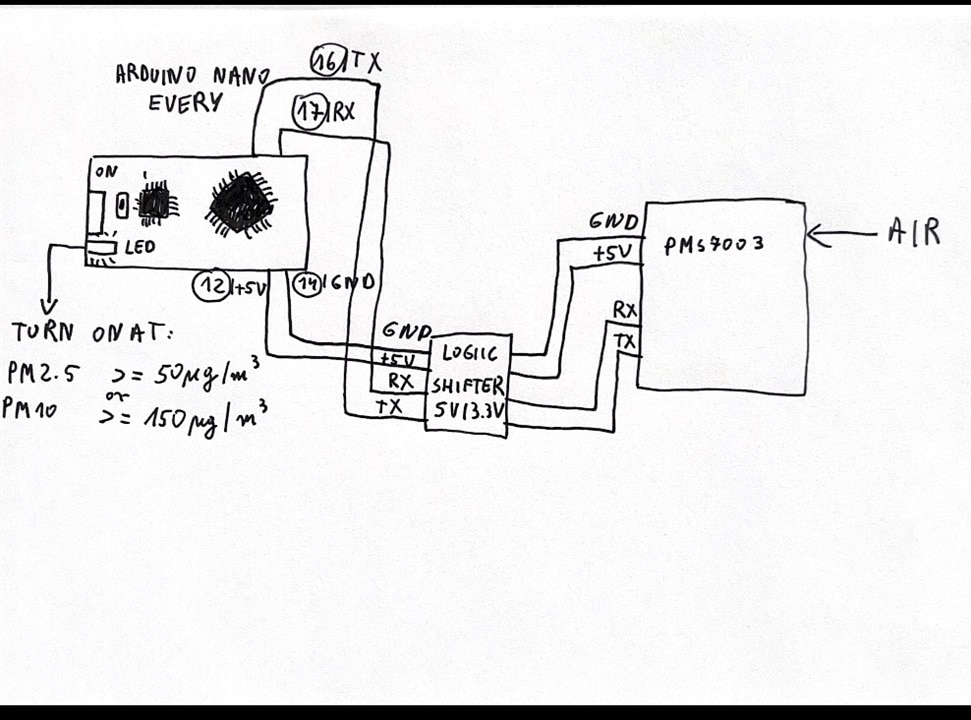 16/TX
ARDUINO NANO
EVERY
17/RX
ON
LED
12/+5V
14/GND
TURN ON AT:
PM2.5 >= 50µg/m³
or
PM10 >= 150µg/m³
GND
+5V
RX
TX
LOGIIC
SHIFTER
5V/3.3V
GND
+5V
RX
TX
PMS7003
AIR